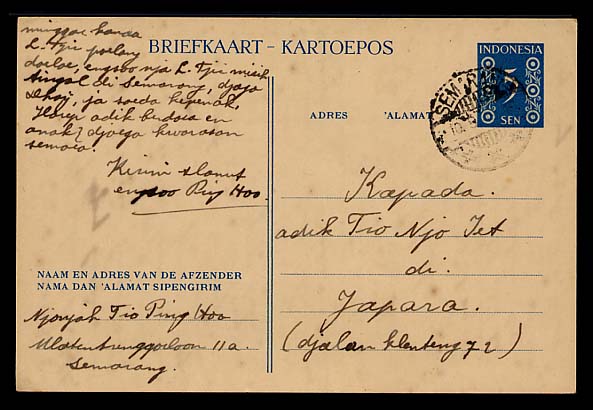 minggoe
L. Tjie poelang
doeloe, engsoo nja L. Tjie misik
tingal di Semarang, djoga
ja soeda
adik berdoea en
anak2 djoega kwarasan
semoea.
Kirim slamet
engsoo Ping Hoo
BRIEFKAART - KARTOEPOS
INDONESIA
5
SEN
SEMARANG
ADRES 'ALAMAT
Kapada.
adik Tio Njo Tet
di.
Japara.
(djalan klenteng 72)
NAAM EN ADRES VAN DE AFZENDER
NAMA DAN 'ALAMAT SIPENGIRIM
Njonjah Tio Ping Hoo
11a.
Semarang.